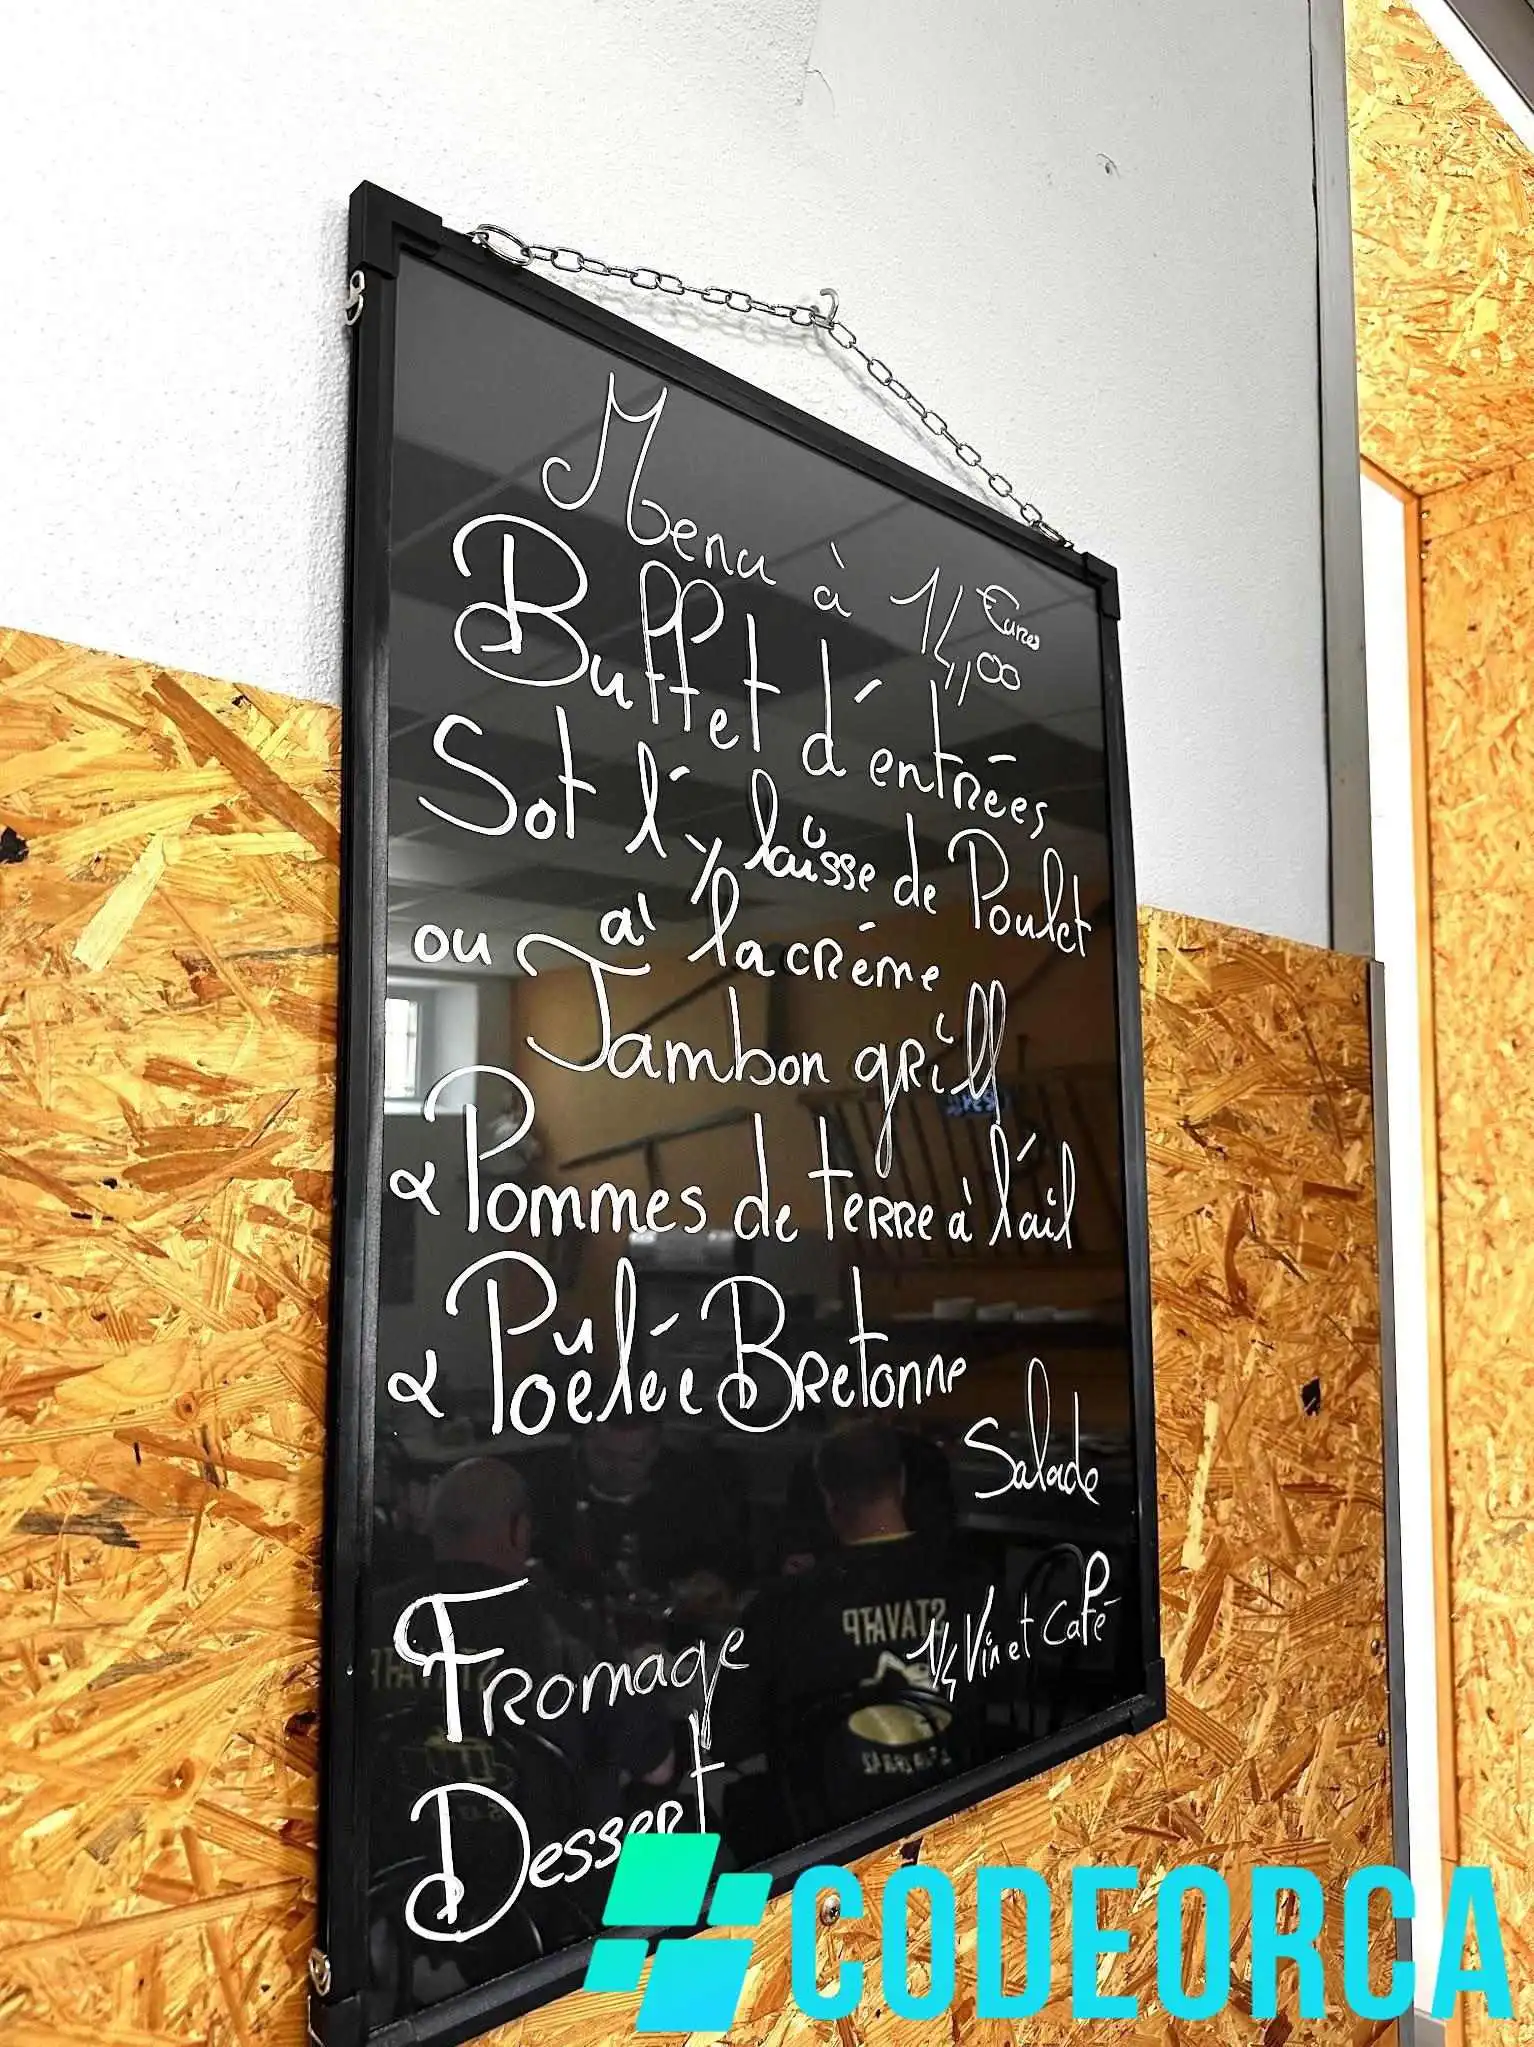 Menu à 14,00 Euros
Buffet d'entrées
Sot l'y laisse de Poulet
à la crème
ou Jambon grill
& Pommes de terre à l'ail
& Poêlée Bretonne
Salade
Fromage
1/4 Vin et Café
Dessert
CODEORCA